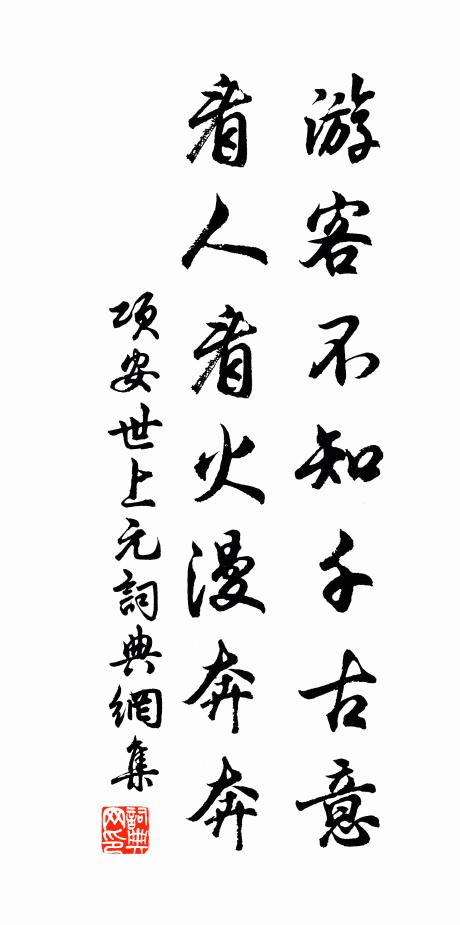 游客不知千古意
看人看火漫奔奔
项安世上元詞典網集
詞典网印